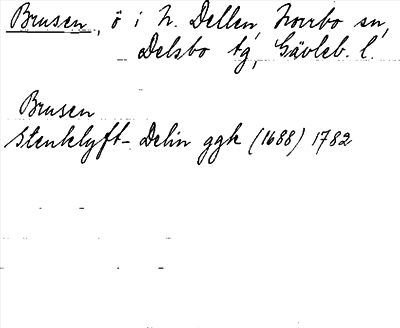 Brusen, ö i N. Dellen, Norrbo sn,
Delsbo tg, Gävleb. l.
Brusen
Stenklyft- Delin ggk (1688) 1782